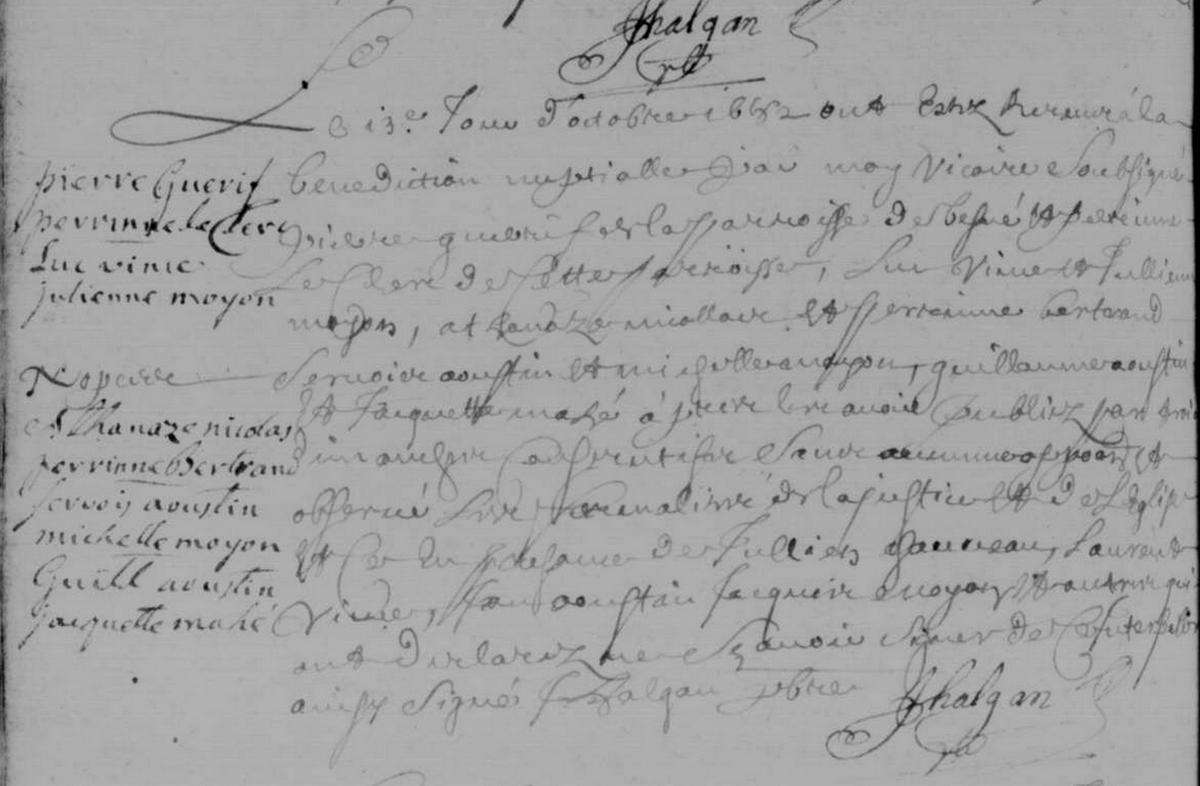 Jhalgan
pbr
Le 13e Jour d'octobre 1652 ont Estez Receu à la
benediction nuptialle par moy Vicaire Soubsigné
pierre guerif de la parroisse de besné et perrinne
Le Clerc de Cette parroisse, Luc Vince et Jullienne
moyon, athanaze nicollas et perrinne bertrand
Servoie aoustin et michelle moyon, guillaume aoustin
et Jacquette mahé
observé les formalitté de la justice et de L'Eglise
et Ce En presance de Jullien Laurent
Vince, Jan aoustin Jacques moyon et autres qui
ont declarez ne Scavoir Signer de Ce Interpelez
ainsy Signé J halgan pbre
Jhalgan
pierre Guerif
perrinne le Clerc
Luc vince
julienne moyon
Athanaze nicolas
perrinne bertrand
servoy aoustin
michelle moyon
Guill aoustin
jacquette mahé